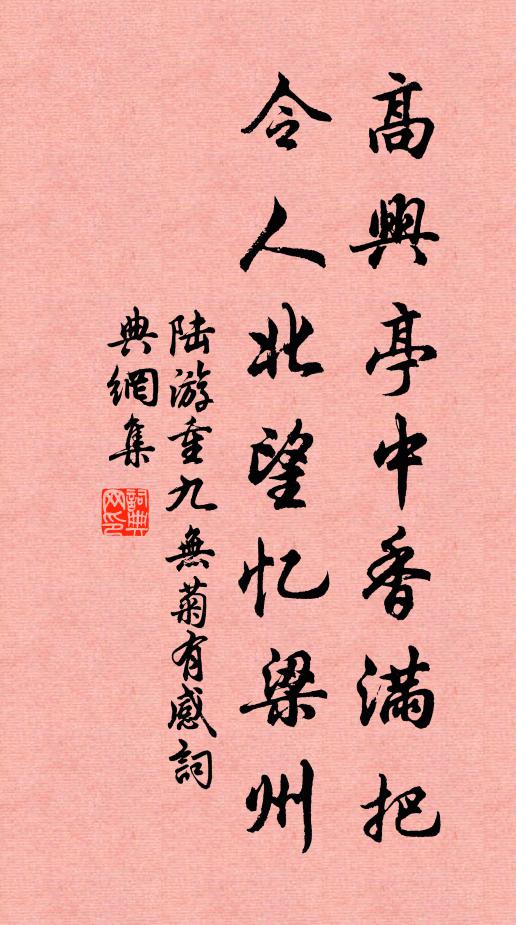 高興亭中香满把
令人北望忆梁州
陆游重九無菊有感詞
典網集
詞典网印